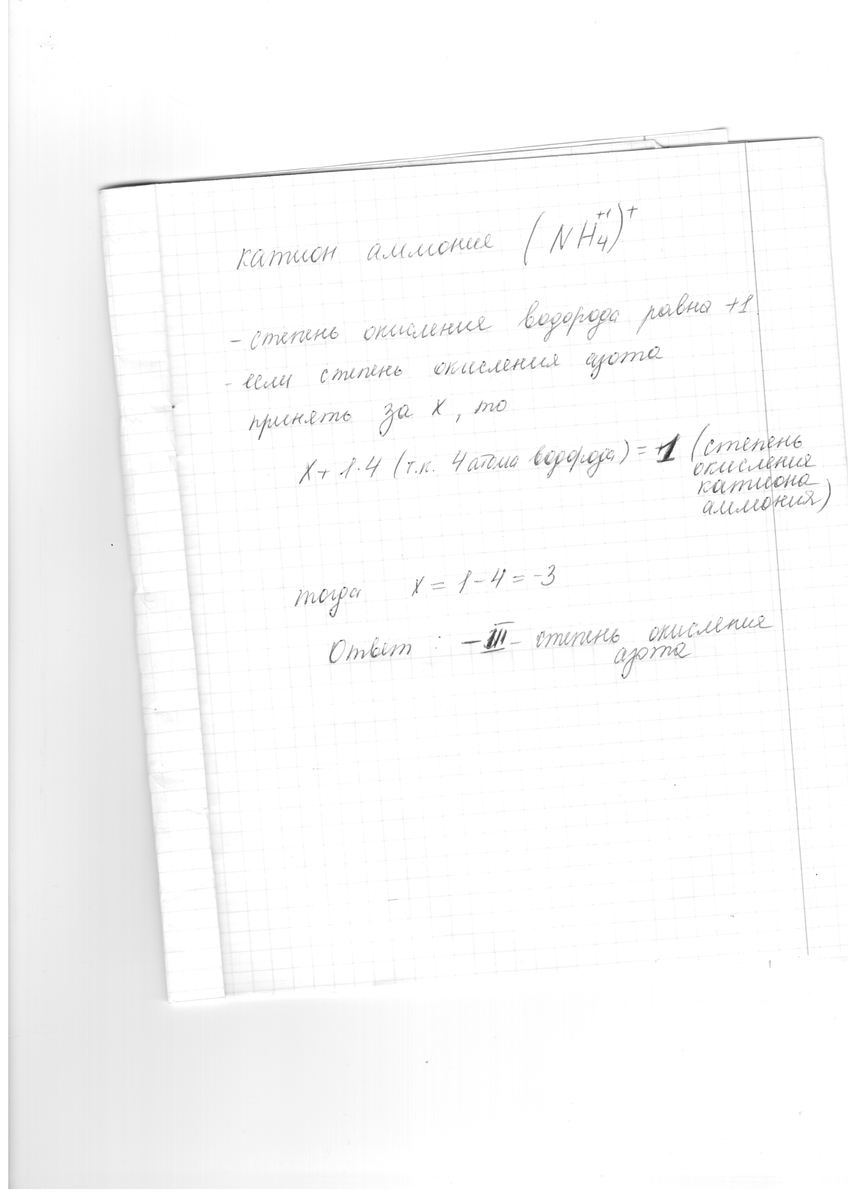 катион аммония (NH₄⁺¹)⁺
- степень окисления водорода равна +1.
- если степень окисления азота
принять за x, то
x + 1·4 (т.к. 4 атома водорода) = +1 (степень
окисления
катиона
аммония)
тогда x = 1 - 4 = -3
Ответ: -III - степень окисления
азота